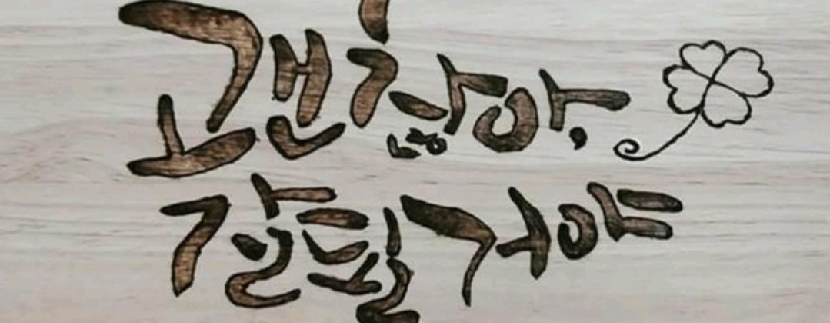 괜찮아,
잘될거야